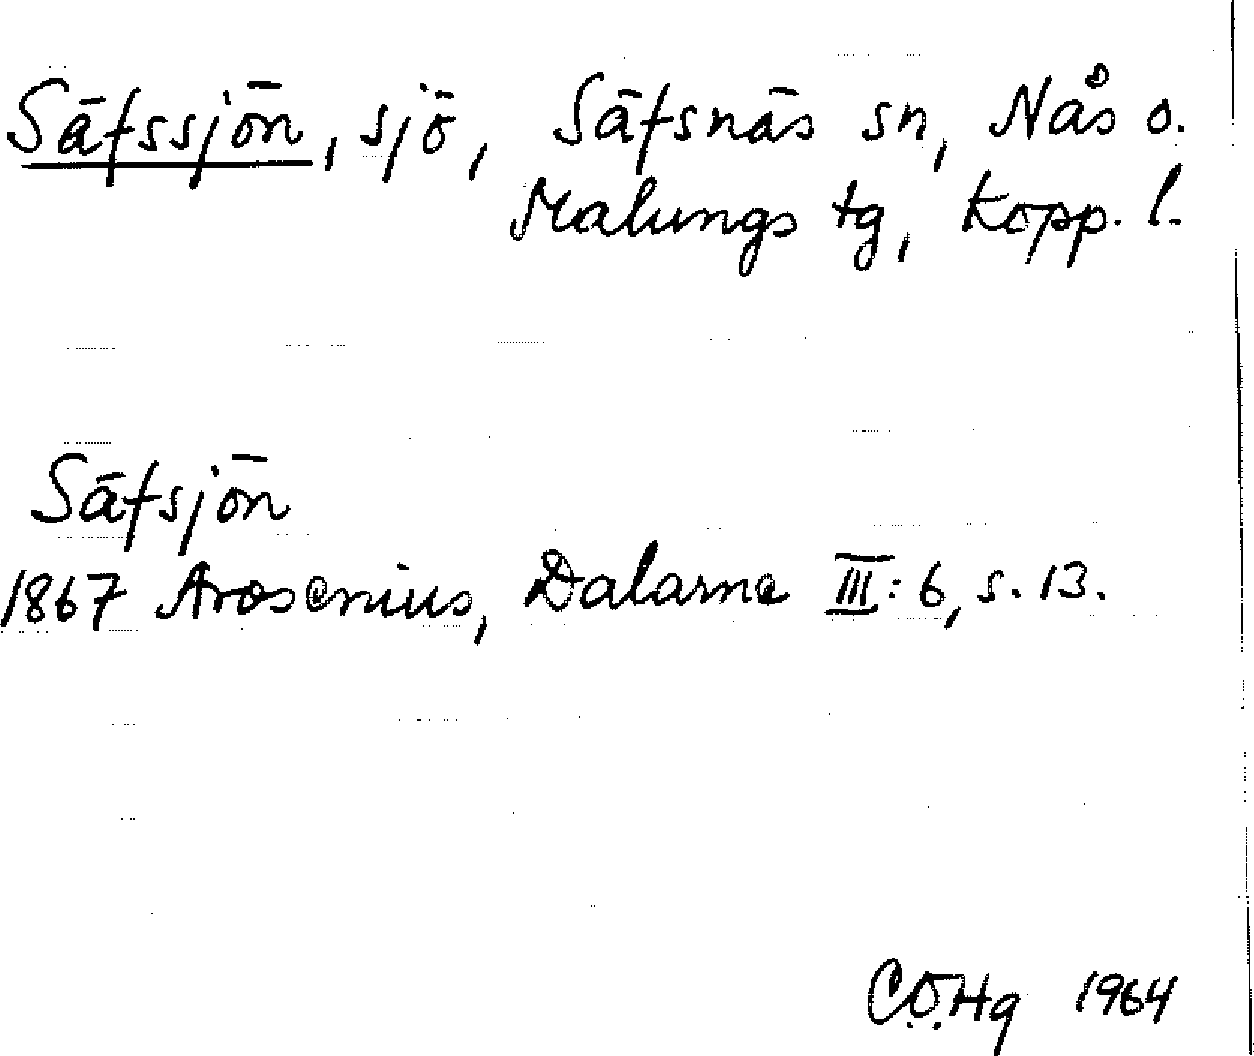 Säfssjön, sjö, Säfsnäs sn, Nås o.
Malungs tg, Kopp. l.
Säfsjön
1867 Arosenius, Dalarne III: 6, s. 13.
C.Ö.Hg 1964